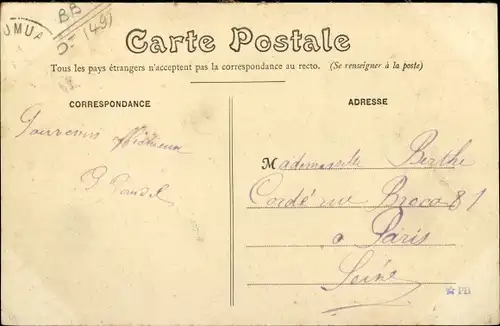 BB
(49)
Carte Postale
Tous les pays étrangers n'acceptent pas la correspondance au recto. (Se renseigner à la poste)
CORRESPONDANCE
ADRESSE
Mademoiselle Berthe
Cordé rue Broca 81
a Paris
Seine
PB